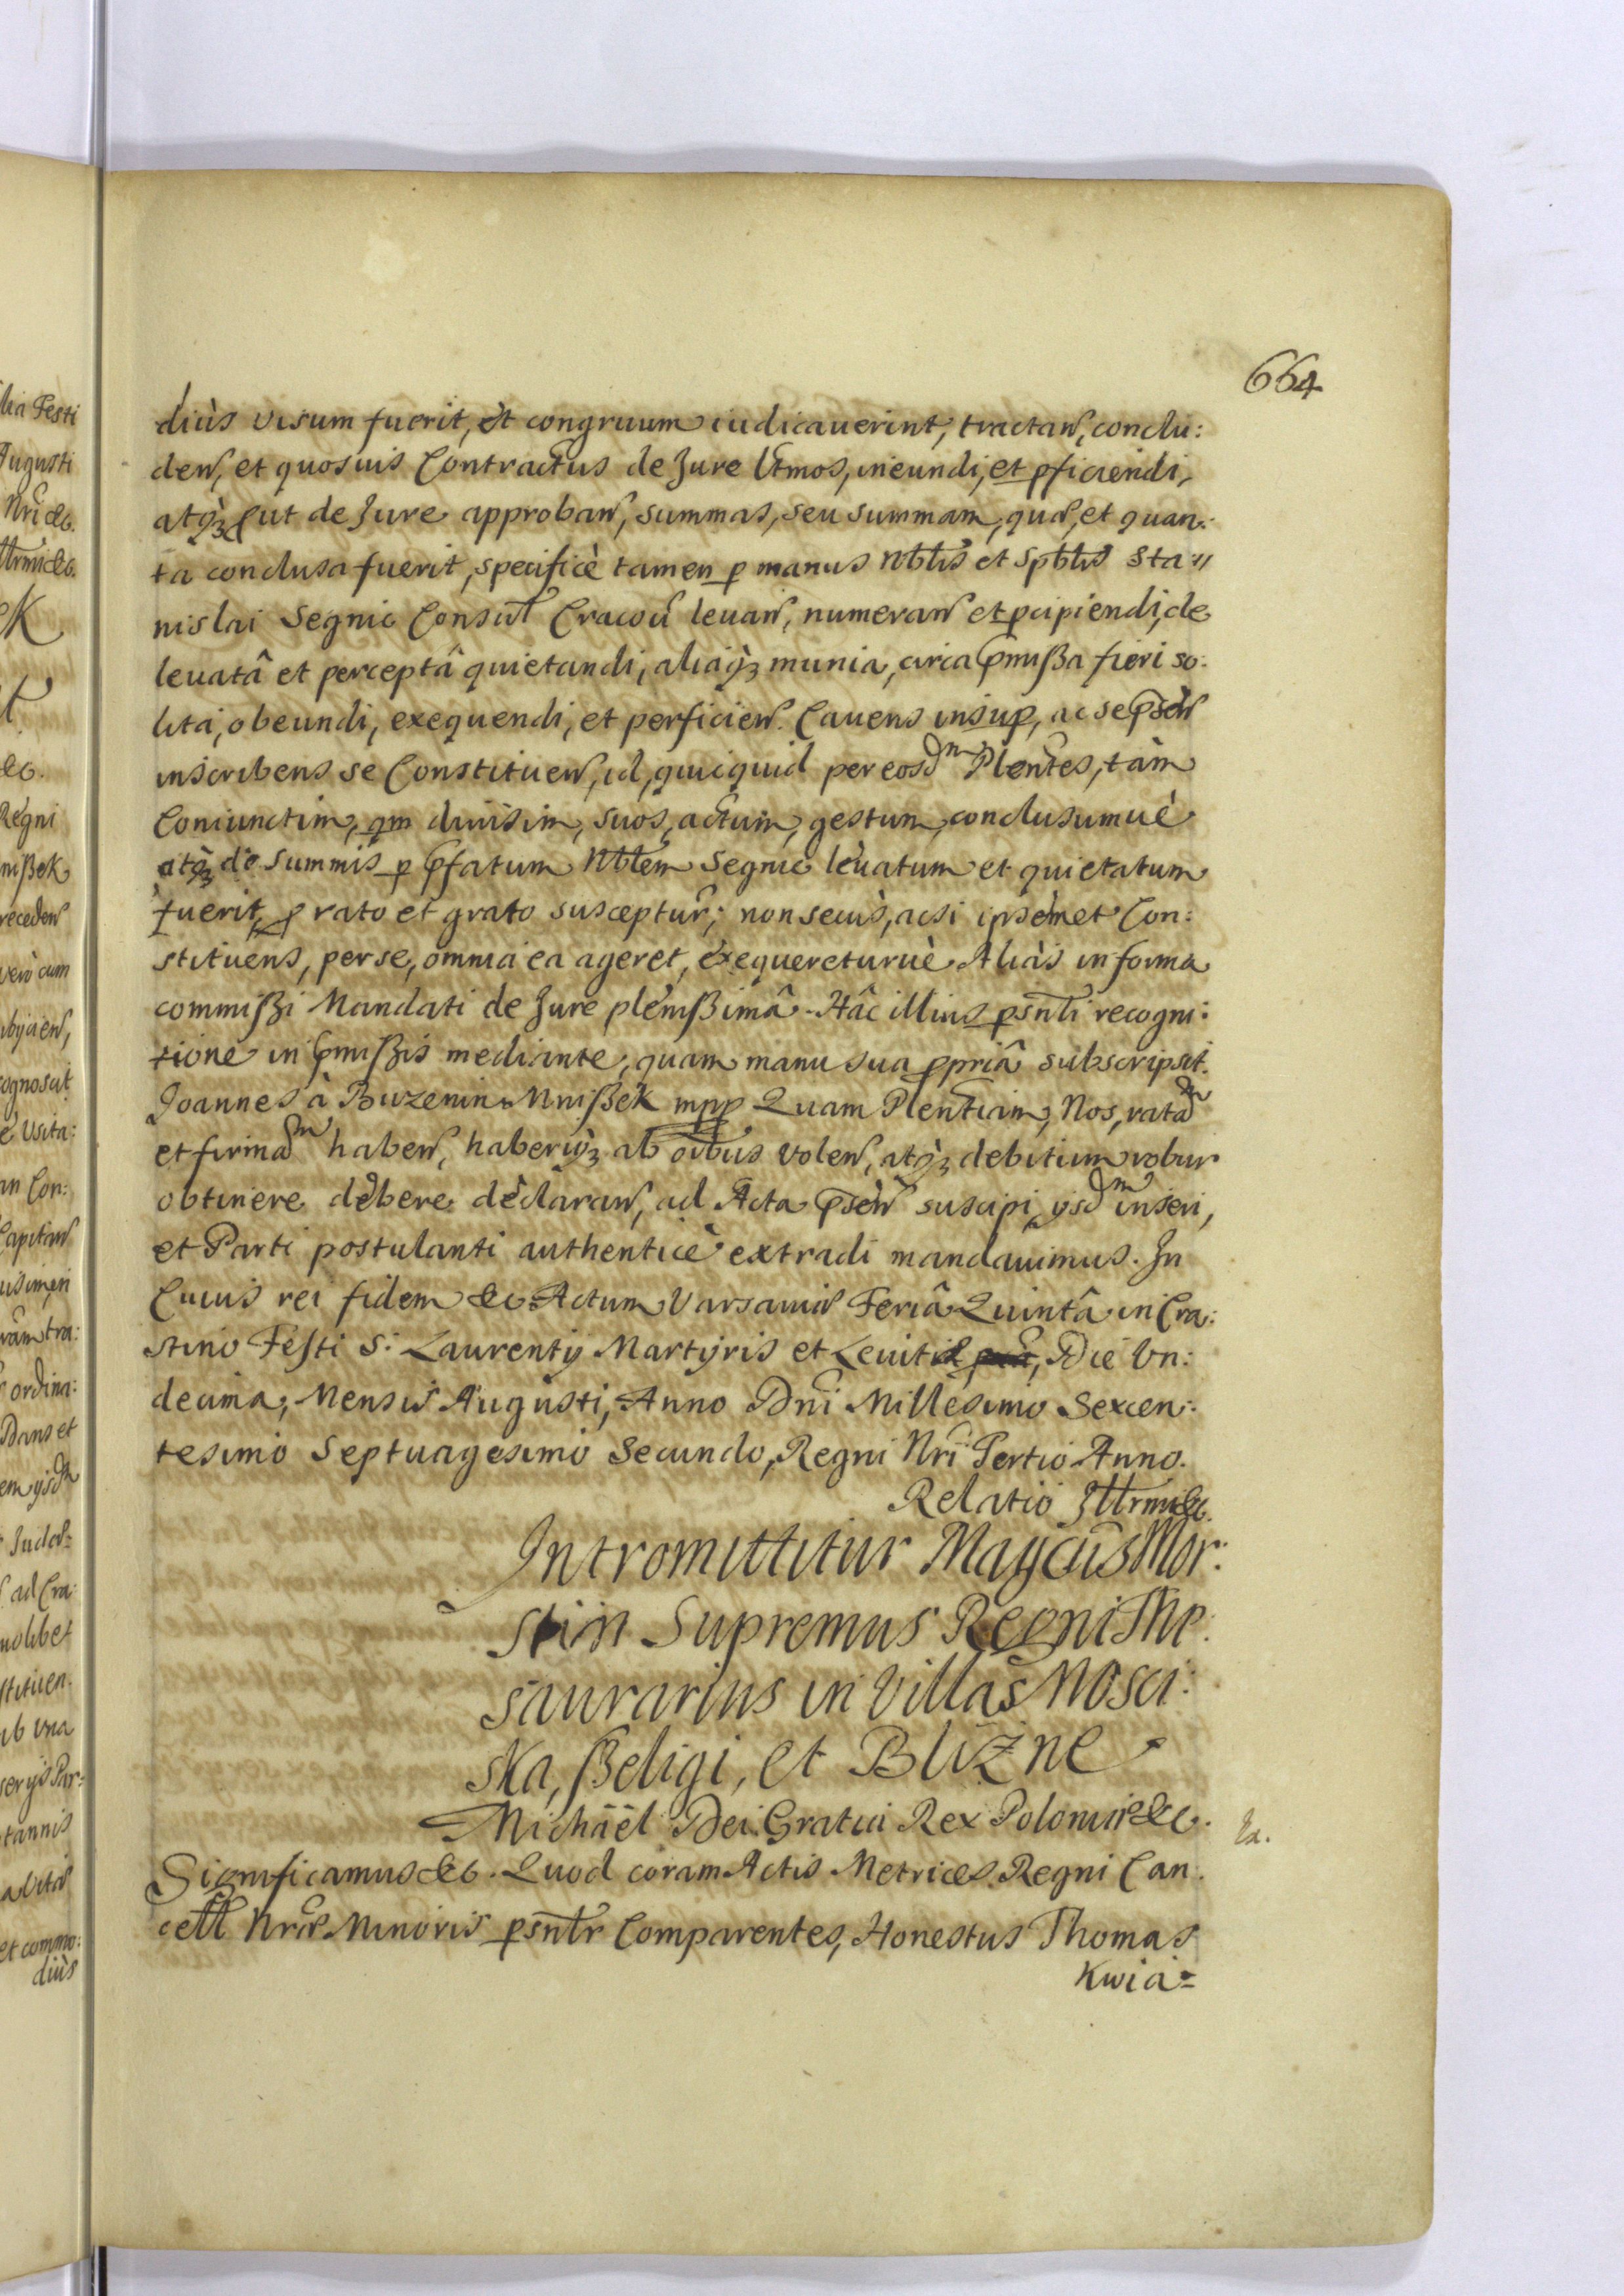 664
diùs visum fuerit, et congruum iudicauerint, tractan, conclu:
den, et quosuis Contractus de Jure Ltmos, ineundi, et pficiendi,
atq3 put de Jure approban, summas, seu summam, quæ, et quan:
ta conclusa fuerit, specificè tamen p manus Nbtis et Spbtis Sta:
nislai Segnic Consul Cracou leuan, numeran et pcipiendi, de
leuatâ et perceptâ quietandi, aliaq3 munia, circa pmißa fieri so:
lita, obeundi, exequendi, et perficien. Cauens insup, ac se psen
inscribens se Constituen, id, quicquid per eosdm Plentes, tàm
Coniunctim, qm diuisim, suos, actum, gestum, conclusumuè
atq3 de summis p pfatum Nbtem Segnic leuatum et quietatum
fuerit, p rato et grato susceptur; non secus, acsi ipsèmet Con:
stituens, per se, omnia ea ageret, exequereturuè Aliàs in forma
commißi Mandati de Jure plenißimâ. Hâc illius psnti recogni:
tione in pmißis mediante, quam manu sua ppriâ subscripsit.
Joannes à Buzenin Mnißek mpp Quam Plentiam, Nos, ratadm
et firmadm haben, haberiq3 ab oibus volen, atq3 debitum robur
obtinere debere declaran, ad Acta psen suscipi, ysdm inseri,
et Parti postulanti authenticè extradi mandauimus. In
Cuius rei fidem &c. Actum Varsauiæ Feriâ Quintâ in Cra:
stino Festi S. Laurentij Martyris et Leuitæ, Die Vn:
decima, Mensis Augusti, Anno Dni Millesimo Sexcen:
tesimo Septuagesimo Secundo, Regni Nri Tertio Anno.
Relatio Illrmi &c.
Intromittitur Magcus Mor:
stin Supremus Regni The:
saurarius in Villas Mosci:
ska, ßeligi, et Blizne
Michäël Dei Gratia Rex Poloniæ &c.
Significamus &c. Quod coram Actis Metrices Regni Can:
cell Nræ Minoris psntr Comparentes, Honestus Thomas
Kwia=